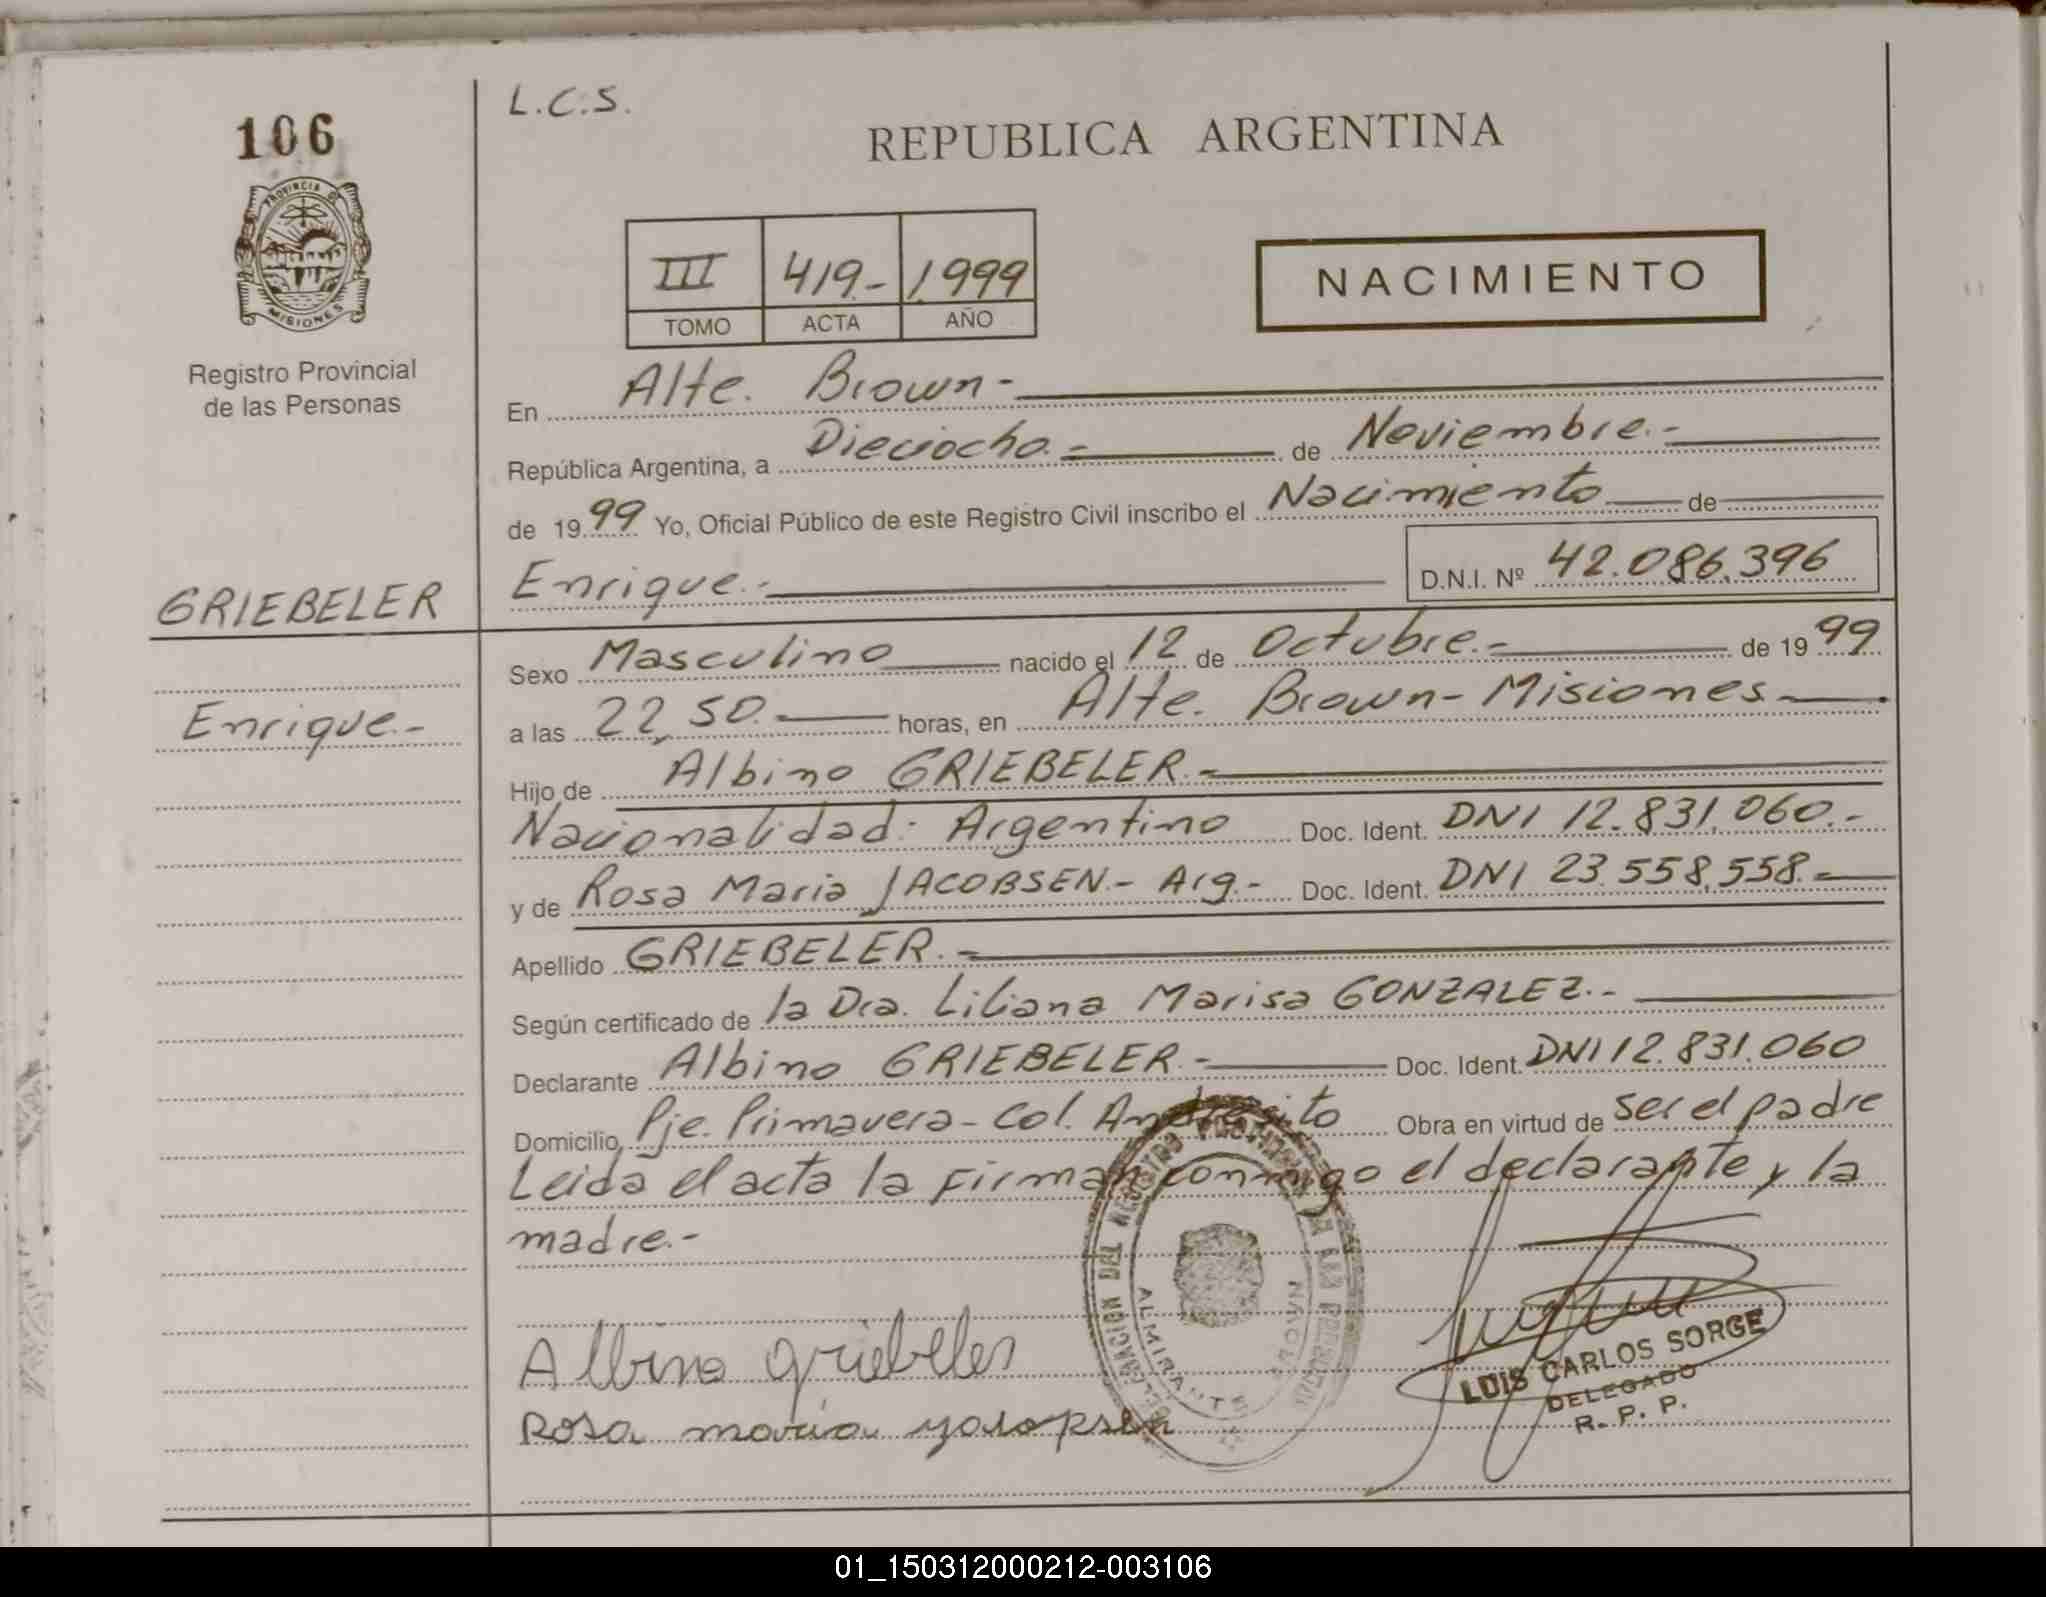 106
PROVINCIA DE
MISIONES
Registro Provincial
de las Personas
GRIEBELER
Enrique.-
L.C.S.
REPUBLICA ARGENTINA
III 419.- 1.999
TOMO ACTA AÑO
NACIMIENTO
En Alte. Brown-
República Argentina, a Dieciocho.- de Noviembre.-
de 19 99 Yo, Oficial Público de este Registro Civil inscribo el Nacimiento de
Enrique.- D.N.I. Nº 42.086.396
Sexo Masculino nacido el 12 de Octubre.- de 19 99
a las 22,50.- horas, en Alte. Brown- Misiones.-
Hijo de Albino GRIEBELER.-
Nacionalidad: Argentino Doc. Ident. DNI 12.831.060.-
y de Rosa Maria JACOBSEN.- Arg.- Doc. Ident. DNI 23.558.558.-
Apellido GRIEBELER.-
Según certificado de la Dra. Liliana Marisa GONZALEZ.-
Declarante Albino GRIEBELER.- Doc. Ident. DNI 12.831.060
Domicilio Pje. Primavera - Col. Andresito Obra en virtud de ser el padre
Leida el acta la firman conmigo el declarante y la
madre.-
Albino griebeler
Rosa maria yasopsen
DEL
ALMIRANTE
BROWN
LUIS CARLOS SORGE
DELEGADO
R. P. P.
01_150312000212-003106